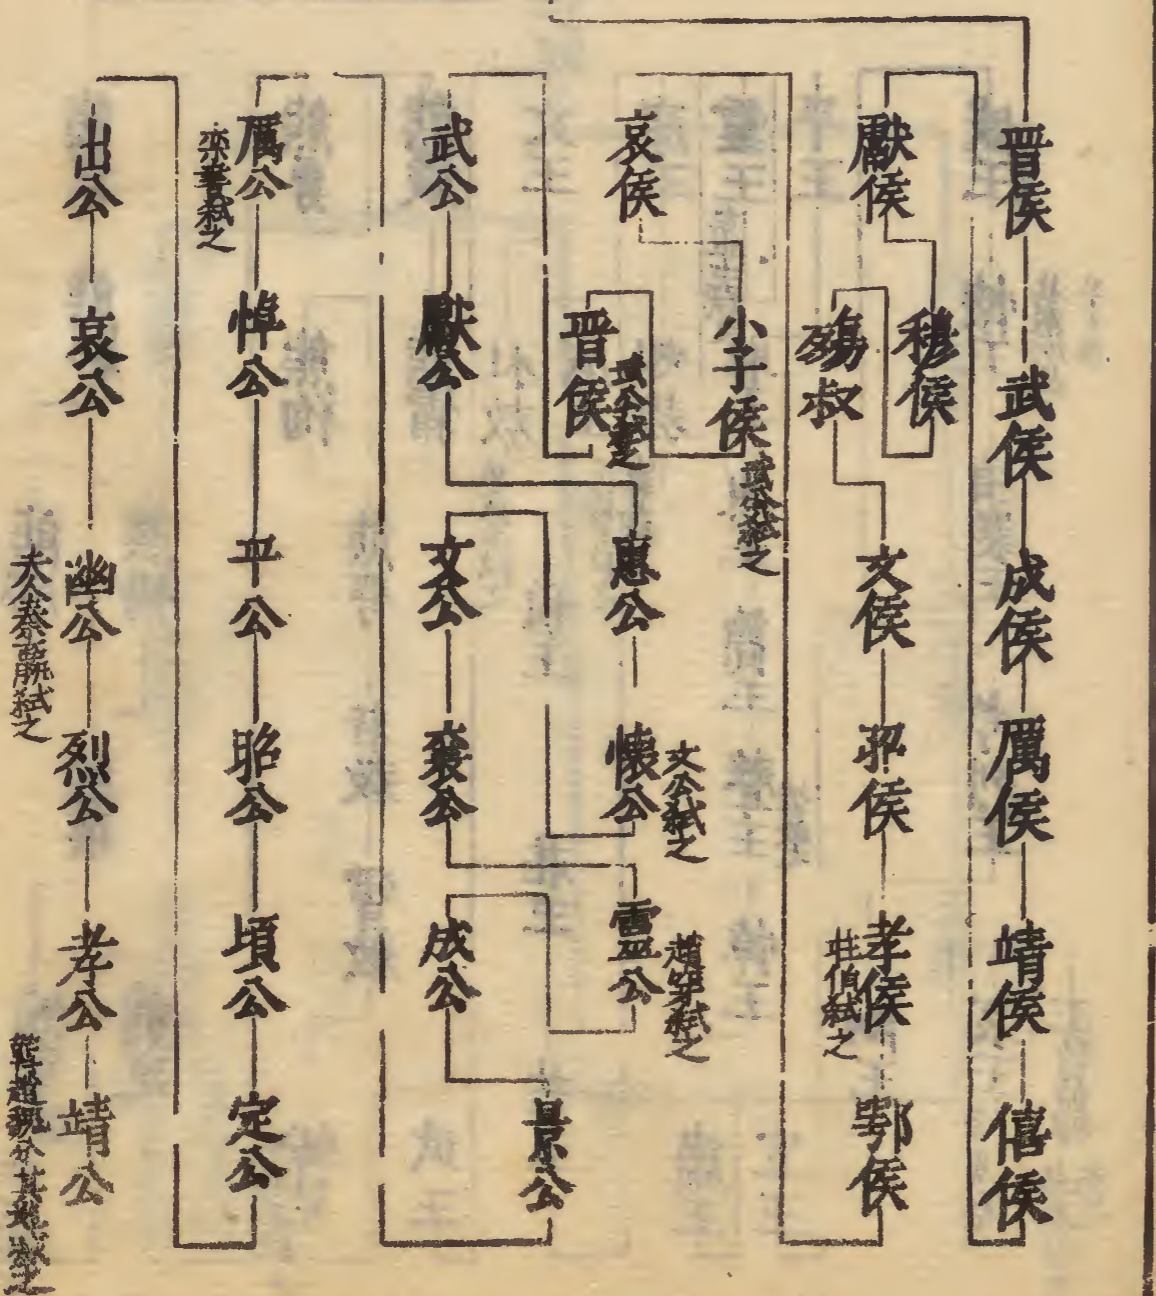 晋侯
武侯
成侯
厲侯
靖侯
僖侯
獻侯
穆侯
殤叔
文侯
昭侯
孝侯
莊伯弑之
鄂侯
哀侯
小子侯
武公弑之
晋侯
武公弑之
武公
獻公
惠公
懷公
文公弑之
文公
襄公
靈公
趙穿弑之
成公
景公
厲公
欒書弑之
悼公
平公
昭公
頃公
定公
出公
哀公
幽公
夫人秦嬴弑之
烈公
孝公
靖公
韓趙魏分其地